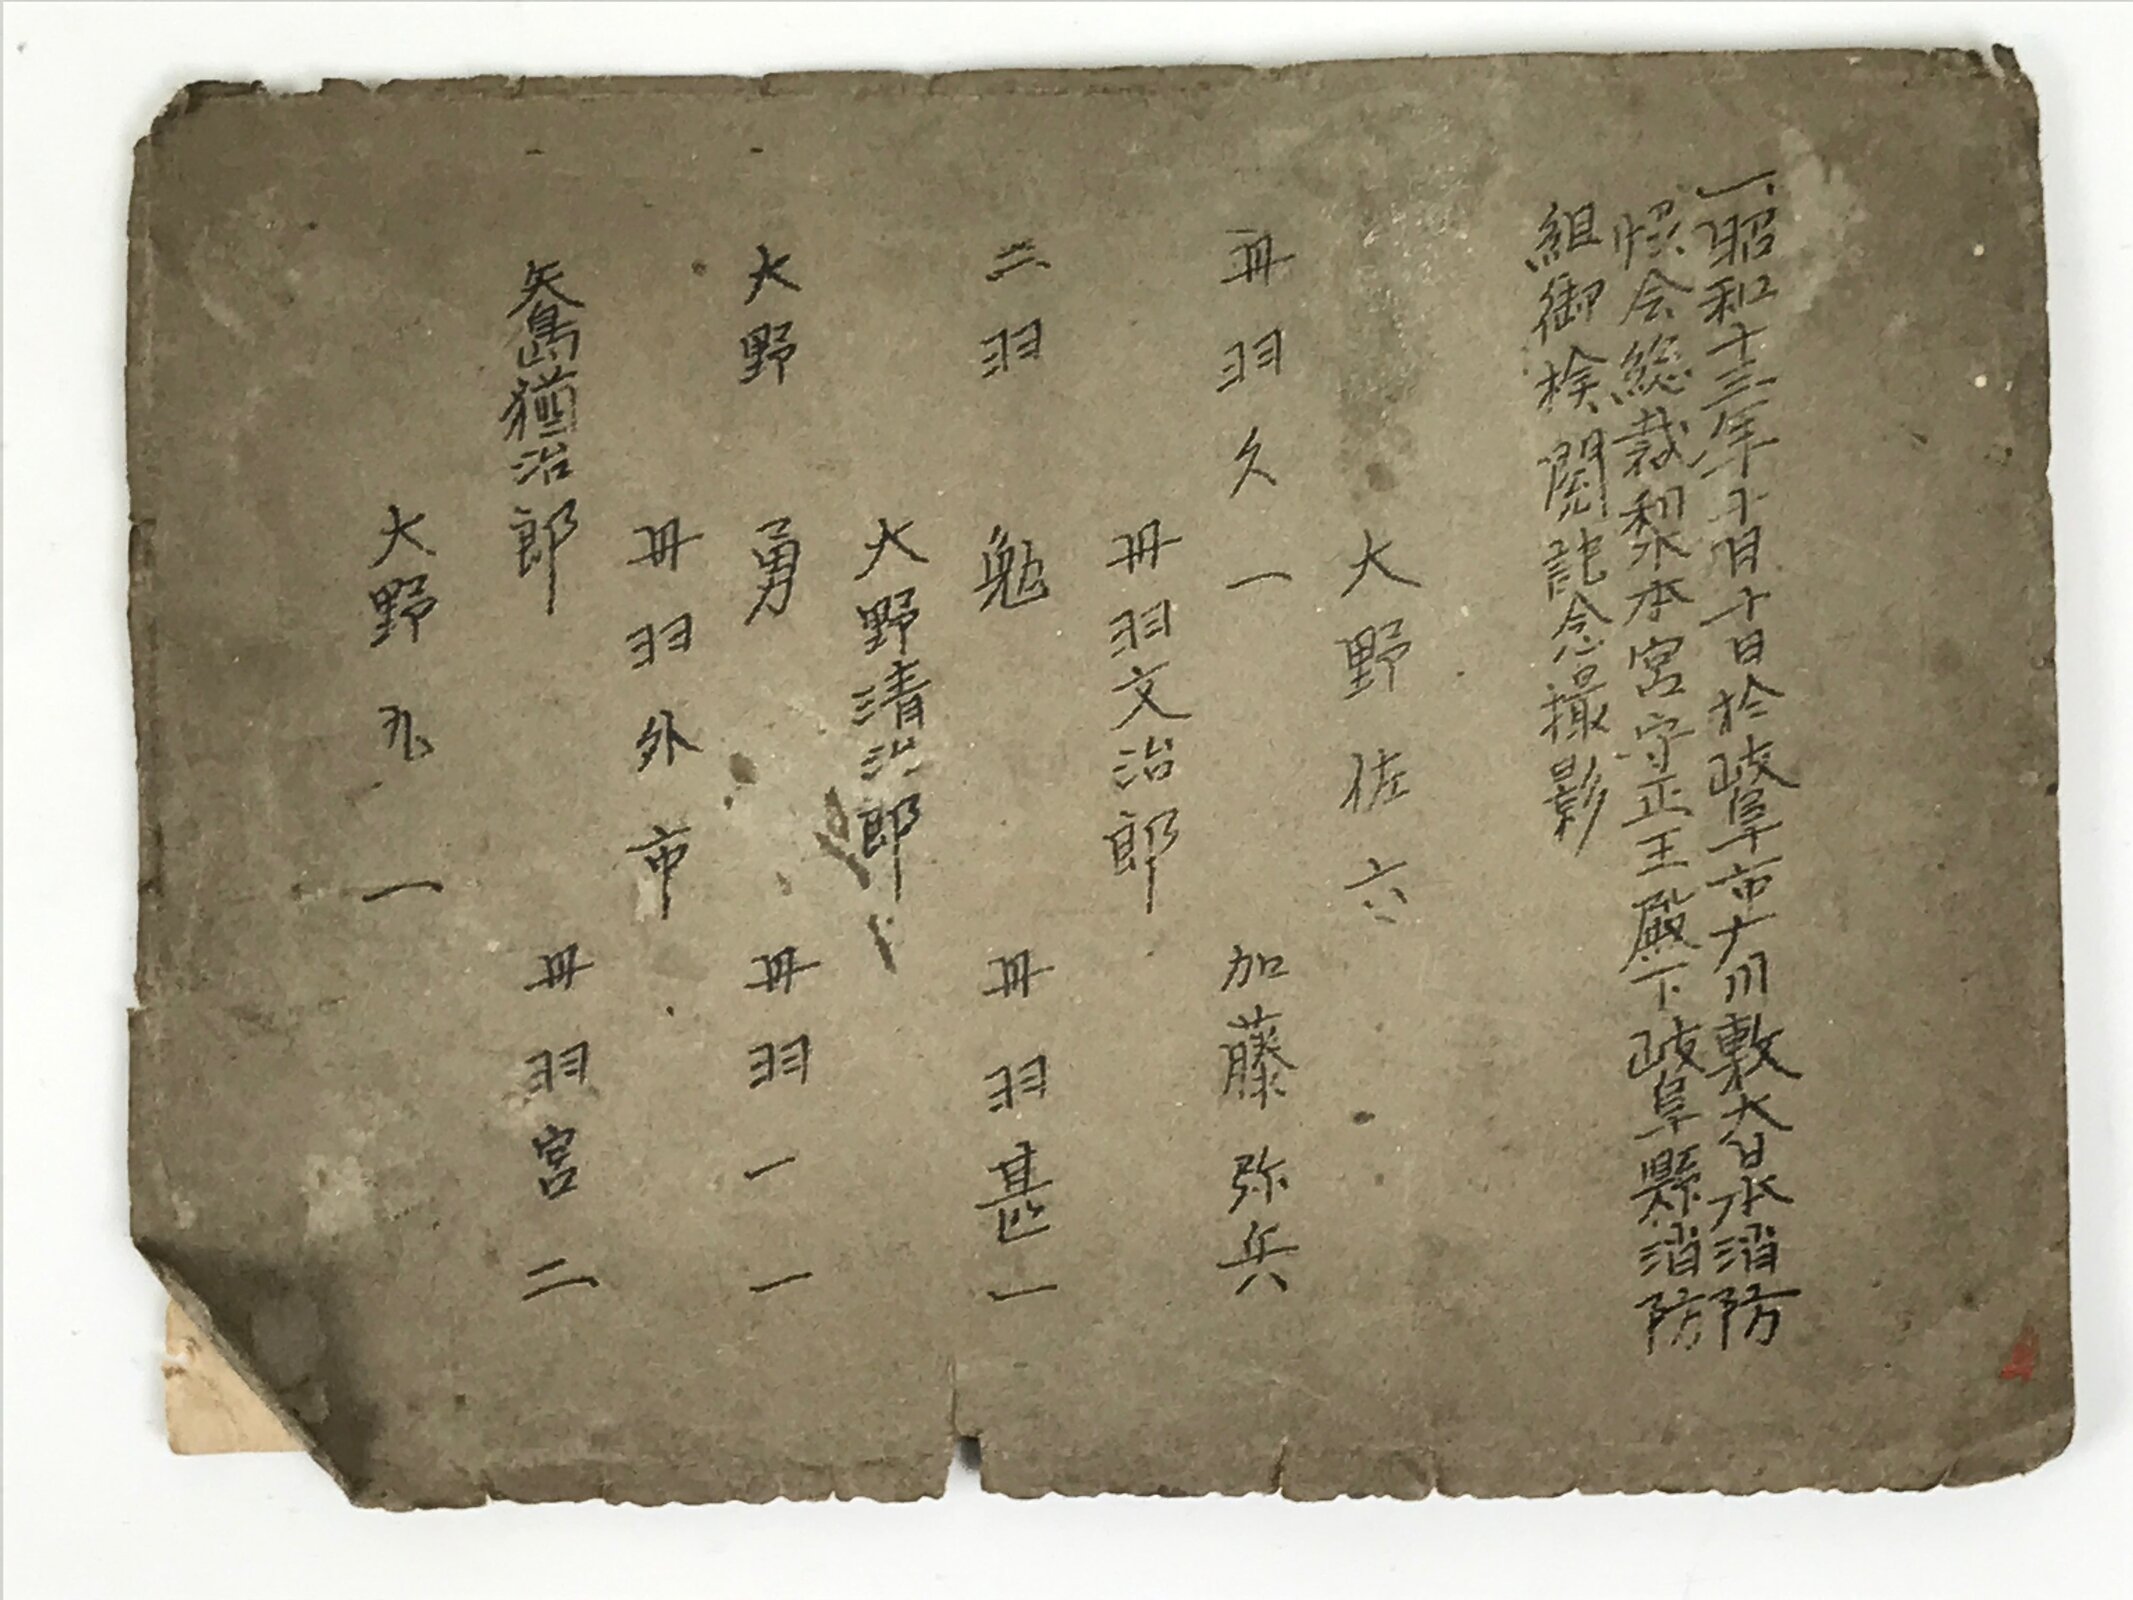 一、昭和十三年十月十日於岐阜市六川敷大日本消防
協会総裁梨本宮守正王殿下岐阜縣消防
組御検閲記念撮影
大野佐六
丹羽久一 加藤弥兵
丹羽文治郎
二羽勉 丹羽甚一
大野清治郎
大野勇 丹羽一一
丹羽外市
矢島猶治郎 丹羽宮二
大野九一